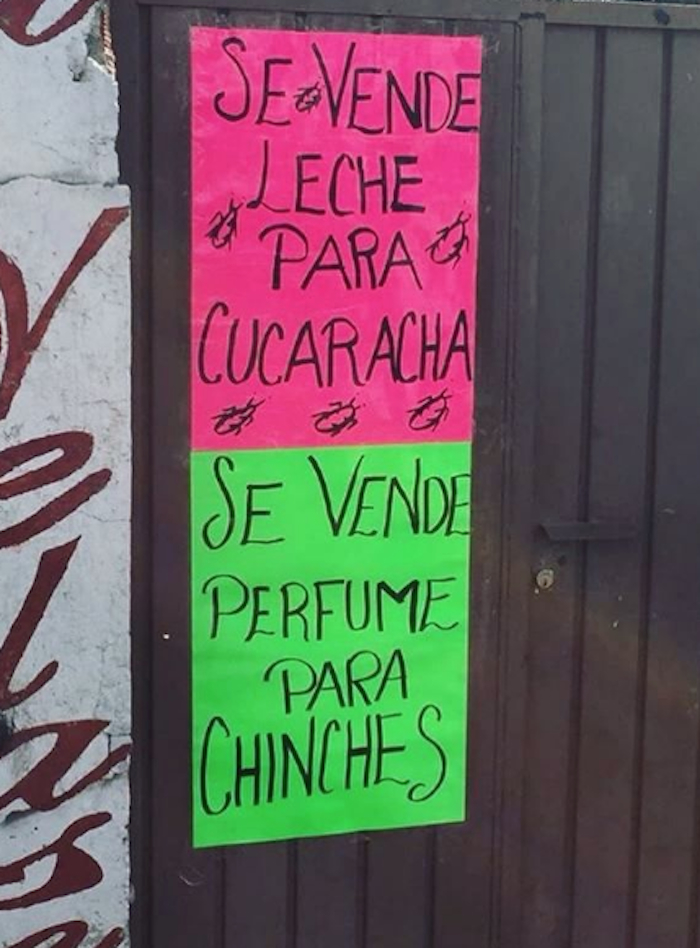 SE VENDE
LECHE
PARA
CUCARACHA
SE VENDE
PERFUME
PARA
CHINCHES